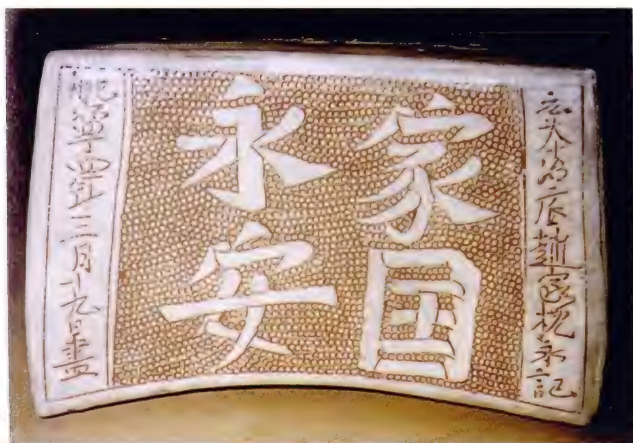 元本冶底趙家枕永記
家国
永安
熙寧四年三月十九日畫